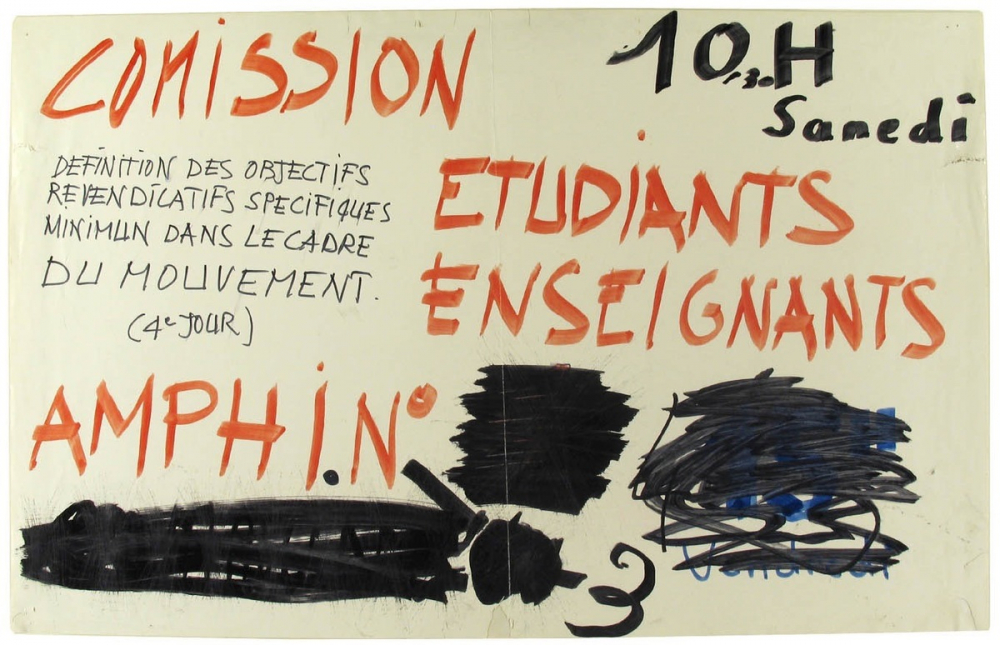 COMISSION
10.30.H
Samedi
DEFINITION DES OBJECTIFS
REVENDICATIFS SPECIFIQUES
MINIMUN DANS LE CADRE
DU MOUVEMENT.
(4e JOUR)
ETUDIANTS
ENSEIGNANTS
AMPHI.N°
3
Vendredi